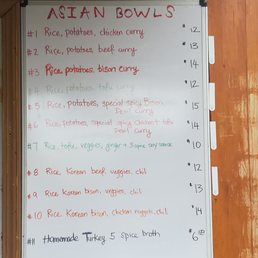 ASIAN BOWLS
#1 Rice, potatoes, chicken curry $12
#2 Rice, potatoes, beef curry $13
#3 Rice, potatoes, bison curry $14
Rice, potatoes, tofu curry $12
#5 Rice, potatoes, special spicy Bison
Devil curry $15
#6 Rice, potatoes, special spicy chicken tofu
Devil curry $14
#7 Rice, tofu, veggies, ginger + 5 spice soy sauce $10
#8 Rice Korean beef, veggies, chil $12
#9 Rice Korean bison, veggies, chil $13
#10 Rice Korean bison, chicken nuggets, chil $14
#11 Homemade Turkey 5 spice broth $6